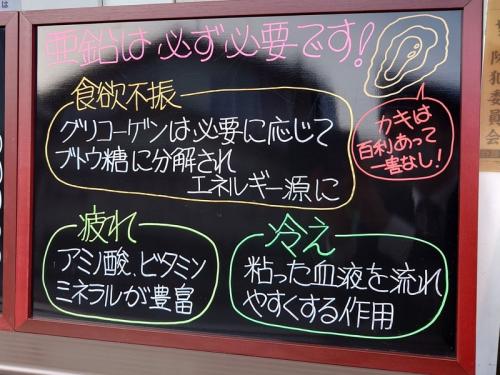 亜鉛は必ず必要です!
カキは
百利あって
一害なし!
食欲不振
グリコーゲンは必要に応じて
ブトウ糖に分解され
エネルギー源に
疲れ
アミノ酸、ビタミン
ミネラルが豊富
冷え
粘った血液を流れ
やすくする作用